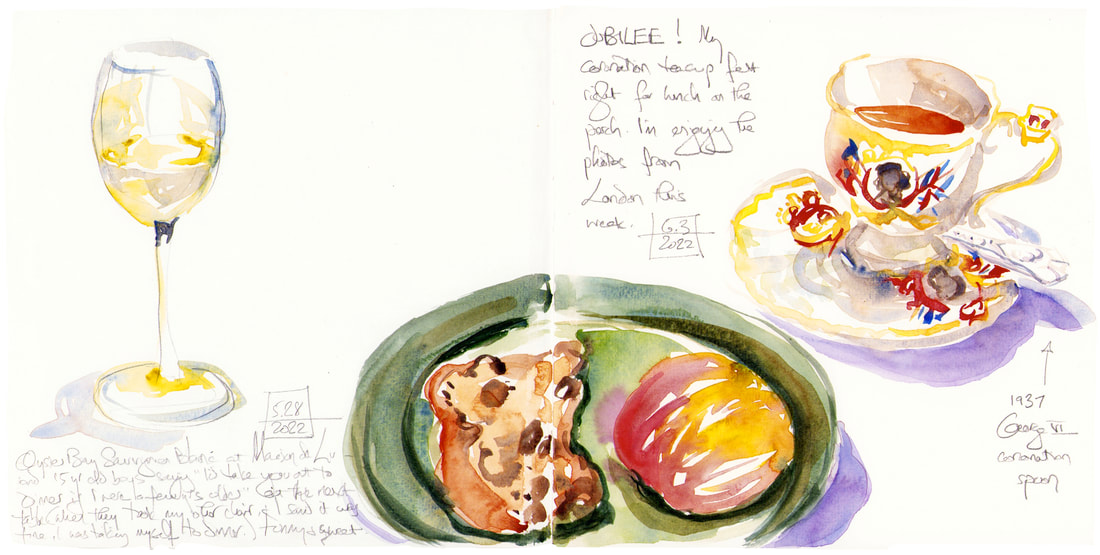 5.28
2022
Oyster Bay Sauvignon Blanc at Maison de Lu
15 yr old boys saying "I'd take you out to
dinner if I were 10 years older" the next
table when they took my chair & I said it was
fine, I was taking myself to dinner, funny & sweet
JUBILEE! My
coronation teacup felt
right for lunch on the
porch. I'm enjoying the
photos from
London this
week.
6.3
2022
1937
George VI
coronation
spoon